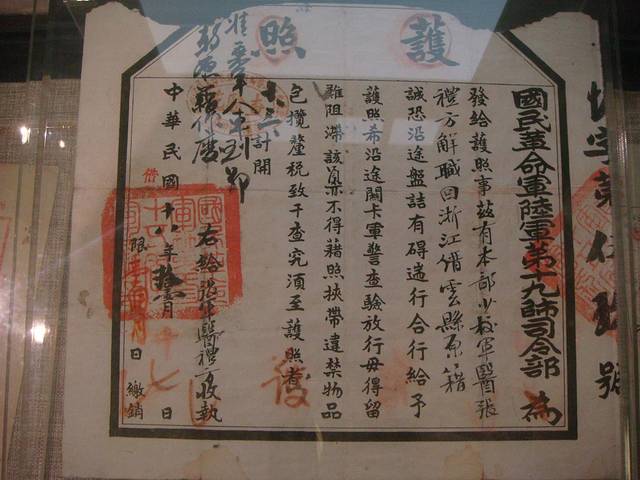 護照
國民革命軍陸軍第十九師司令部 為
發給護照事茲有本部少校軍醫張
禮方解職回浙江縉雲縣原籍
誠恐沿途盤詰有碍遄行合行給予
護照希沿途關卡軍警查驗放行毋得留
難阻滯該員亦不得藉照挾帶違禁物品
包攬釐稅致干查究須至護照者
計開
右給張軍醫禮方收執
中華民國十八年 月十七日
限 月 日繳銷